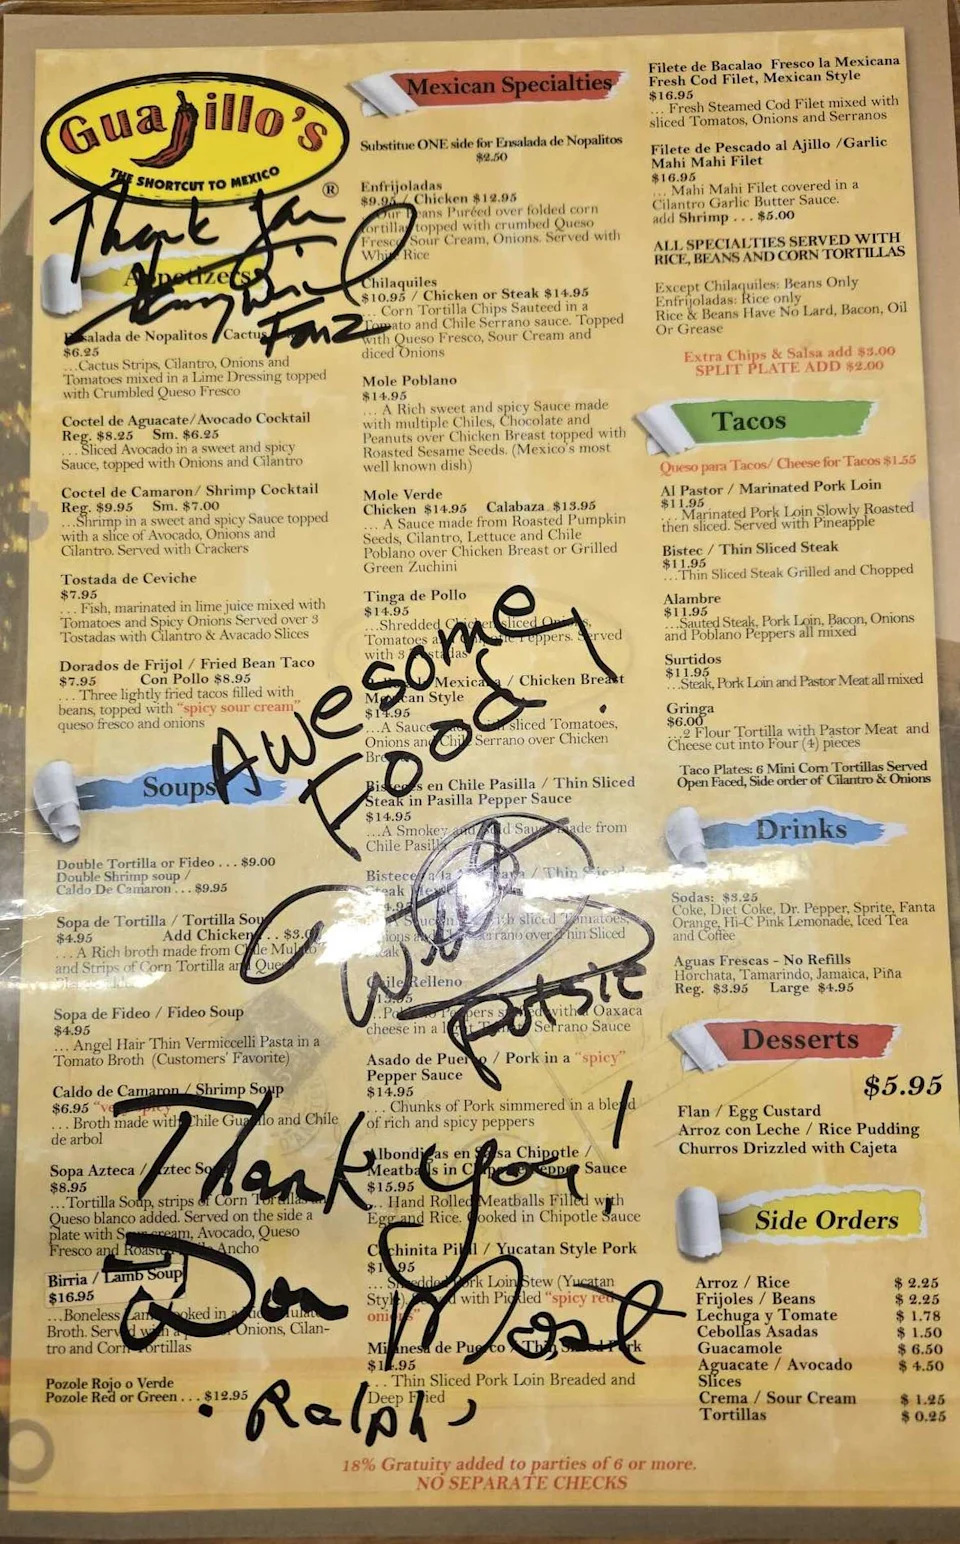 Guajillo's
THE SHORTCUT TO MEXICO
®
Thank You
Fonz
Appetizers
Ensalada de Nopalitos / Cactus
$6.25
...Cactus Strips, Cilantro, Onions and
Tomatoes mixed in a Lime Dressing topped
with Crumbled Queso Fresco
Coctel de Aguacate/Avocado Cocktail
Reg. $8.25 Sm. $6.25
...Sliced Avocado in a sweet and spicy
Sauce, topped with Onions and Cilantro
Coctel de Camaron/ Shrimp Cocktail
Reg. $9.95 Sm. $7.00
...Shrimp in a sweet and spicy Sauce topped
with a slice of Avocado, Onions and
Cilantro. Served with Crackers
Tostada de Ceviche
$7.95
... Fish, marinated in lime juice mixed with
Tomatoes and Spicy Onions Served over 3
Tostadas with Cilantro & Avacado Slices
Dorados de Frijol / Fried Bean Taco
$7.95 Con Pollo $8.95
... Three lightly fried tacos filled with
beans, topped with "spicy sour cream"
queso fresco and onions
Soups
Double Tortilla or Fideo . . . $9.00
Double Shrimp soup /
Caldo De Camaron . . . $9.95
Sopa de Tortilla / Tortilla Soup
$4.95 Add Chicken . . . $3.0
... A Rich broth made from Chile Mulato
and Strips of Corn Tortilla and Queso
Sopa de Fideo / Fideo Soup
$4.95
... Angel Hair Thin Vermiccelli Pasta in a
Tomato Broth (Customers' Favorite)
Caldo de Camaron / Shrimp Soup
$6.95 "very spicy"
... Broth made with Chile Guajillo and Chile
de arbol
Sopa Azteca / Aztec Soup
$8.95
...Tortilla Soup, strips of Corn Tortillas
Queso blanco added. Served on the side a
plate with Sour cream, Avocado, Queso
Fresco and Roasted Chile Ancho
Birria / Lamb Soup
$16.95
...Boneless Lamb cooked in a
Broth. Served with a Onions, Cilan-
tro and Corn Tortillas
Pozole Rojo o Verde
Pozole Red or Green . . . $12.95
Mexican Specialties
Substitue ONE side for Ensalada de Nopalitos
$2.50
Enfrijoladas
$9.95 / Chicken $12.95
...Our Beans Puréed over folded corn
tortillas topped with crumbed Queso
Fresco, Sour Cream, Onions. Served with
White Rice
Chilaquiles
$10.95 / Chicken or Steak $14.95
... Corn Tortilla Chips Sauteed in a
Tomato and Chile Serrano sauce. Topped
with Queso Fresco, Sour Cream and
diced Onions
Mole Poblano
$14.95
... A Rich sweet and spicy Sauce made
with multiple Chiles, Chocolate and
Peanuts over Chicken Breast topped with
Roasted Sesame Seeds. (Mexico's most
well known dish)
Mole Verde
Chicken $14.95 Calabaza $13.95
... A Sauce made from Roasted Pumpkin
Seeds, Cilantro, Lettuce and Chile
Poblano over Chicken Breast or Grilled
Green Zuchini
Tinga de Pollo
$14.95
...Shredded Chicken, sliced Onions,
Tomatoes and Chipotle Peppers. Served
with 3 Tostadas
Mexicana / Chicken Breast
Mexican Style
$14.95
...A Sauce with sliced Tomatoes,
Onions and Chile Serrano over Chicken
Breast
Bisteces en Chile Pasilla / Thin Sliced
Steak in Pasilla Pepper Sauce
$14.95
...A Smokey and Sauce made from
Chile Pasilla
Bisteces a la Mexicana / Thin Sliced
Steak
sliced Tomatoes,
Onions and Serrano over Thin Sliced
Steak
Chile Relleno
Peppers stuffed with Oaxaca
cheese in a Light Serrano Sauce
Asado de Puerco / Pork in a "spicy"
Pepper Sauce
$14.95
... Chunks of Pork simmered in a blend
of rich and spicy peppers
Albondigas en Salsa Chipotle /
Meatballs in Chipotle Pepper Sauce
$15.95
... Hand Rolled Meatballs Filled with
Egg and Rice. Cooked in Chipotle Sauce
Cochinita Pibil / Yucatan Style Pork
... Shredded Pork Loin Stew (Yucatan
Style), Served with Pickled "spicy red
onions"
Milanesa de Puerco / Thin Sliced Pork
... Thin Sliced Pork Loin Breaded and
Deep Fried
Awesome
Food!
Potsie
Thank You!
Don Most
Ralph
Filete de Bacalao Fresco la Mexicana
Fresh Cod Filet, Mexican Style
$16.95
... Fresh Steamed Cod Filet mixed with
sliced Tomatos, Onions and Serranos
Filete de Pescado al Ajillo /Garlic
Mahi Mahi Filet
$16.95
... Mahi Mahi Filet covered in a
Cilantro Garlic Butter Sauce.
add Shrimp . . . $5.00
ALL SPECIALTIES SERVED WITH
RICE, BEANS AND CORN TORTILLAS
Except Chilaquiles: Beans Only
Enfrijoladas: Rice only
Rice & Beans Have No Lard, Bacon, Oil
Or Grease
Extra Chips & Salsa add $3.00
SPLIT PLATE ADD $2.00
Tacos
Queso para Tacos/ Cheese for Tacos $1.55
Al Pastor / Marinated Pork Loin
$11.95
... Marinated Pork Loin Slowly Roasted
then sliced. Served with Pineapple
Bistec / Thin Sliced Steak
$11.95
...Thin Sliced Steak Grilled and Chopped
Alambre
$11.95
...Sauted Steak, Pork Loin, Bacon, Onions
and Poblano Peppers all mixed
Surtidos
$11.95
...Steak, Pork Loin and Pastor Meat all mixed
Gringa
$6.00
...2 Flour Tortilla with Pastor Meat and
Cheese cut into Four (4) pieces
Taco Plates: 6 Mini Corn Tortillas Served
Open Faced, Side order of Cilantro & Onions
Drinks
Sodas: $3.25
Coke, Diet Coke, Dr. Pepper, Sprite, Fanta
Orange, Hi-C Pink Lemonade, Iced Tea
and Coffee
Aguas Frescas - No Refills
Horchata, Tamarindo, Jamaica, Piña
Reg. $3.95 Large $4.95
Desserts
$5.95
Flan / Egg Custard
Arroz con Leche / Rice Pudding
Churros Drizzled with Cajeta
Side Orders
Arroz / Rice $ 2.25
Frijoles / Beans $ 2.25
Lechuga y Tomate $ 1.78
Cebollas Asadas $ 1.50
Guacamole $ 6.50
Aguacate / Avocado $ 4.50
Slices
Crema / Sour Cream $ 1.25
Tortillas $ 0.25
18% Gratuity added to parties of 6 or more.
NO SEPARATE CHECKS